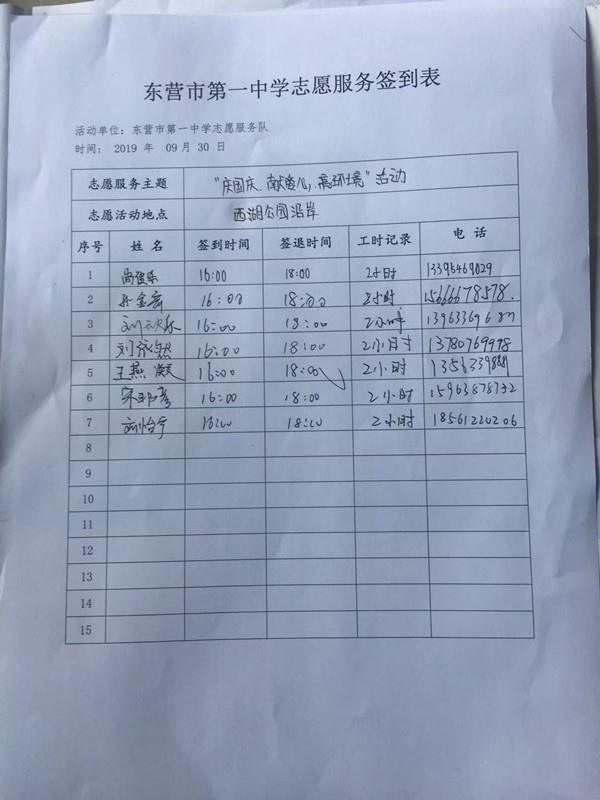 东营市第一中学志愿服务签到表
活动单位：东营市第一中学志愿服务队
时间： 2019 年 09 月 30 日
志愿服务主题 “庆国庆、献爱心，高环境”活动
志愿活动地点 西湖公园沿岸
序号 姓名 签到时间 签退时间 工时记录 电话
1 16:00 18:00 2小时 13395469029
2 16:00 18:00 2小时 15666678578.
3 16:00 18:00 2小时
4 16:00 18:00 2小时 13780769978
5 王燕 16:00 18:00 2小时
6 16:00 18:00 2小时 15963878732
7 刘怡宁 16:00 18:00 2小时 18561220206
8
9
10
11
12
13
14
15